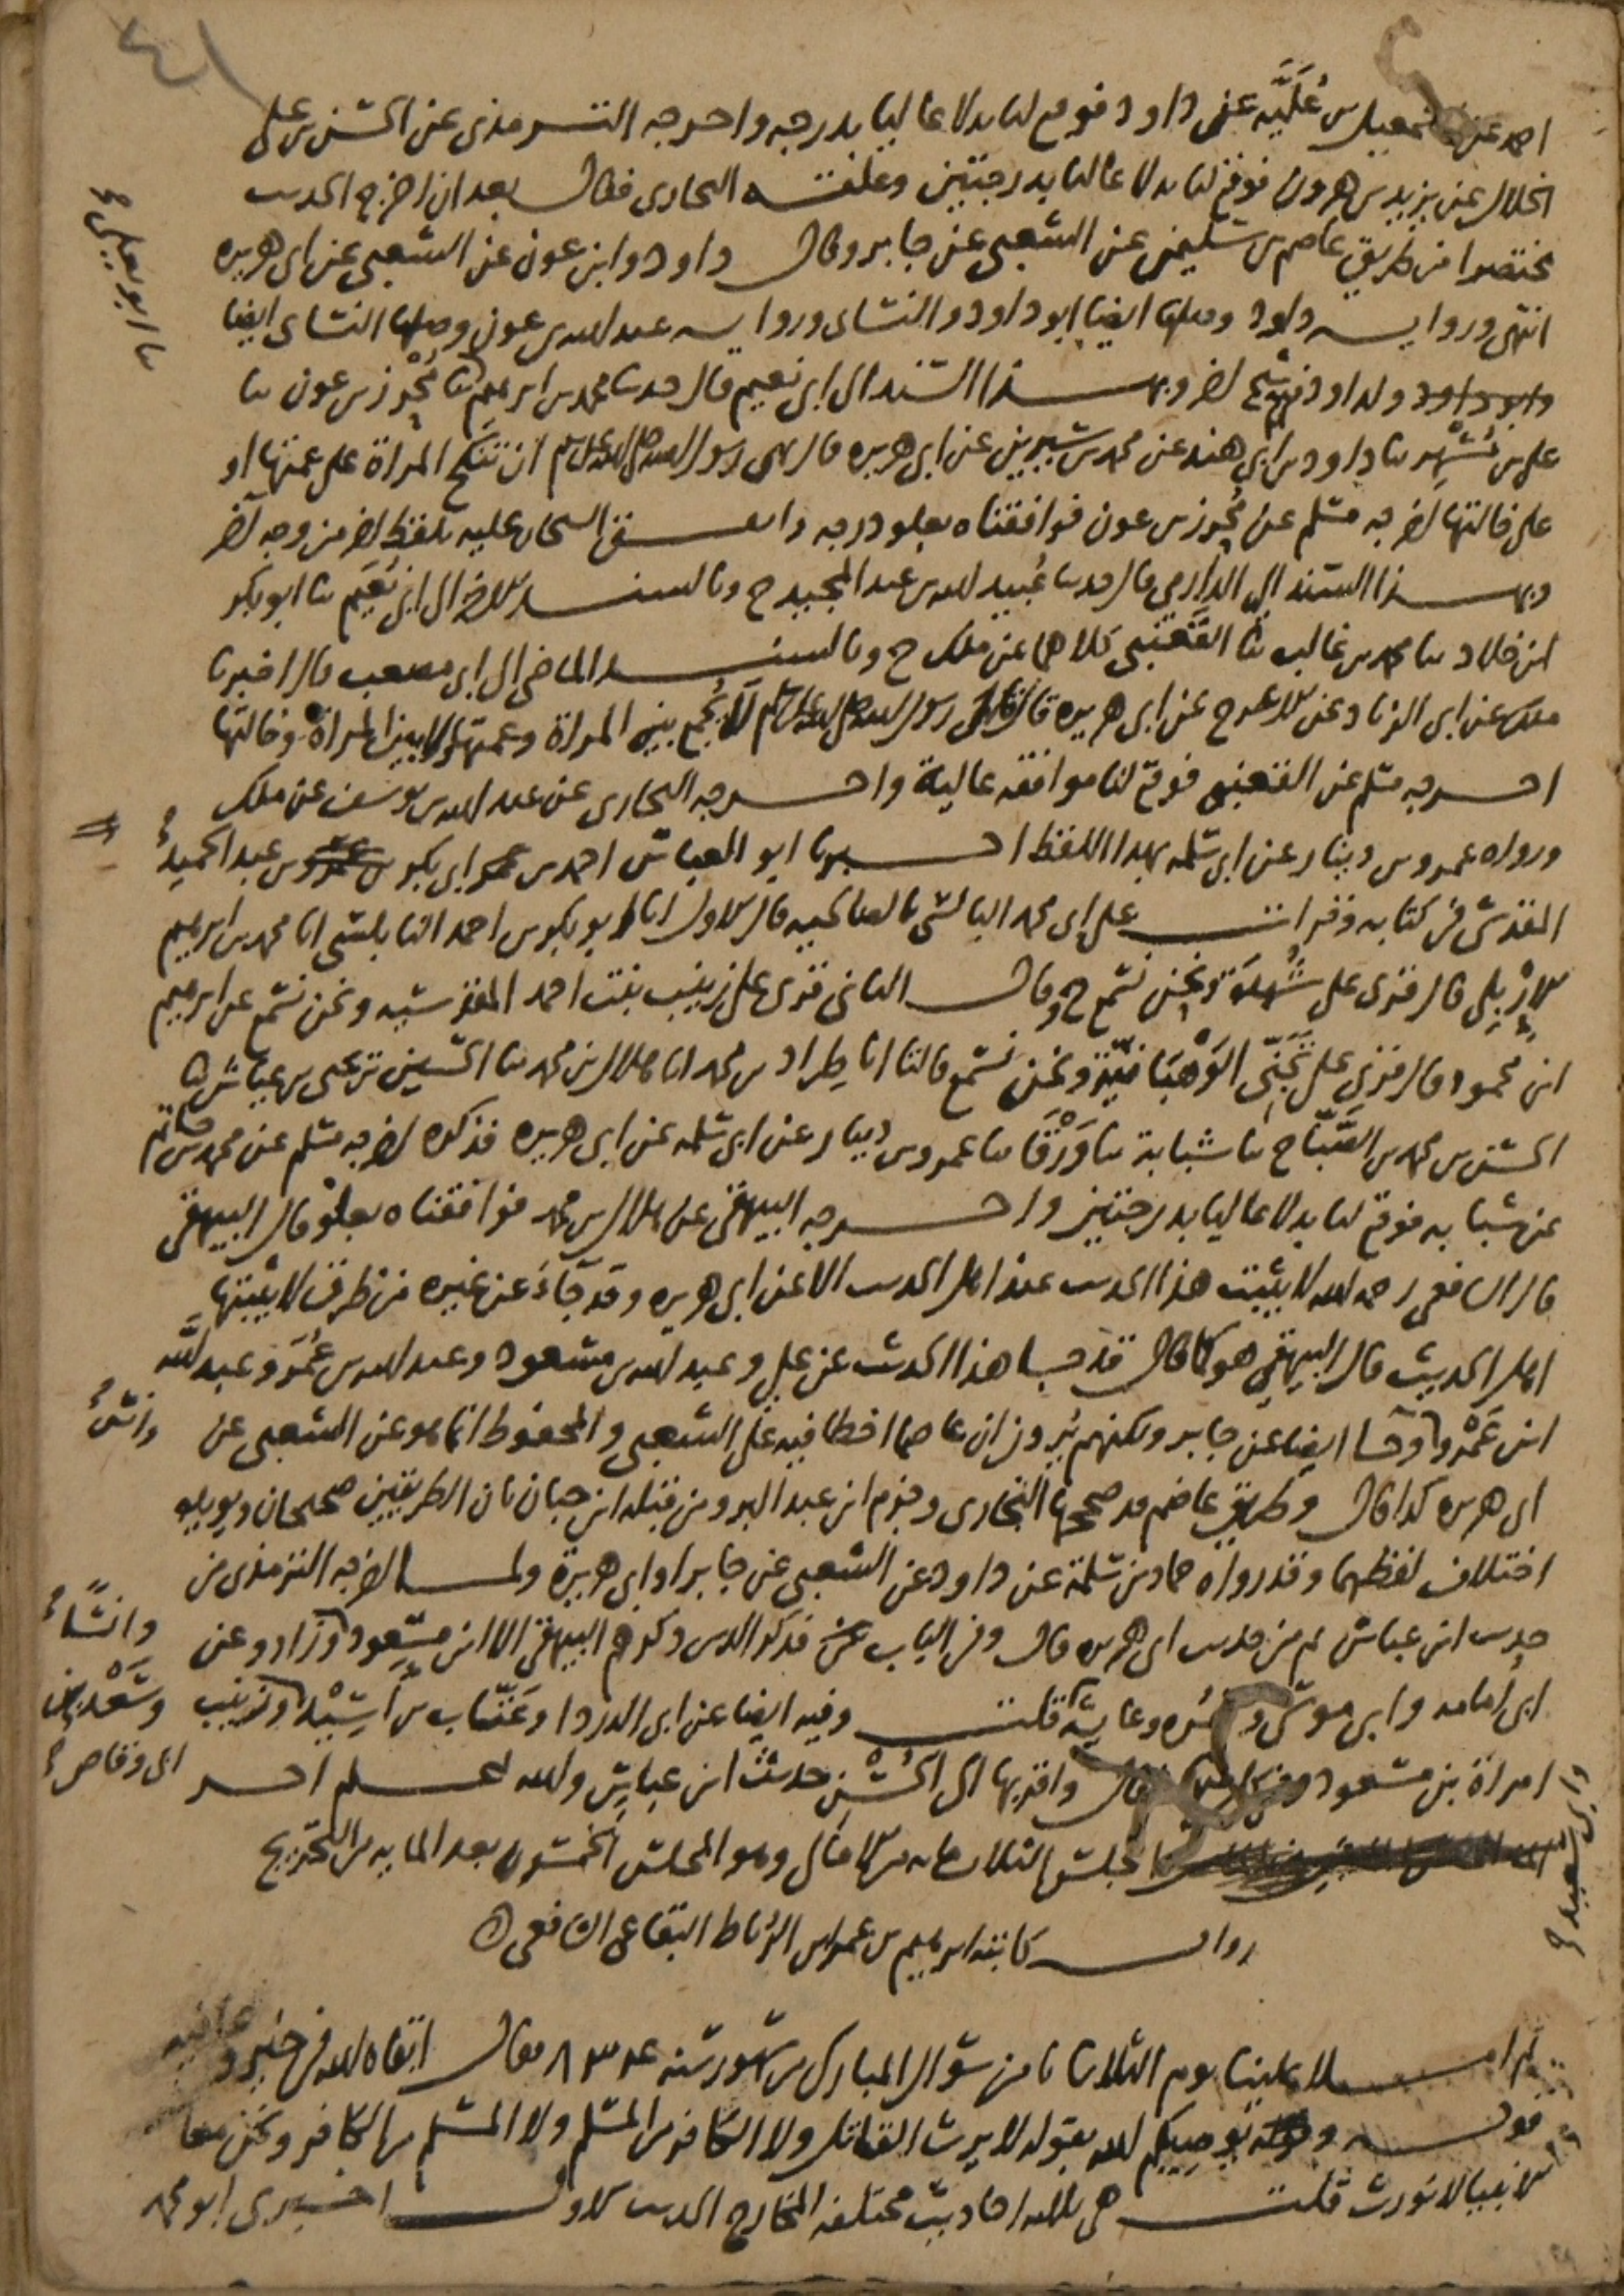 ٤١
احمد عن اسمعيل بن عُلَيَّه عن داود فوقع لنا بدلا عاليا بدرجه واخرجه الترمذى عن الحسن بن على
الخلال عن يزيد بن هرون فوقع لنا بدلا عاليا بدرجتين وعلقه البخارى فقال بعد ان اخرج الحديث
مختصرا من طريق عاصم بن سليمن عن الشعبى عن جابر وقال داود وابن عون عن الشعبى عن ابى هريره
انتهى ورواية داود وصلها ايضا ابو داود والنسائى ورواية عبد الله بن عون وصلها النسائى ايضا
ولداود فيه شيخ اخر وبهذا السند الى ابى نعيم قال حدثنا محمد بن ابرهيم ثنا مُحْرِز بن عون ثنا
على بن مُسْهِر ثنا داود بن ابى هند عن محمد بن سيرين عن ابى هريره قال نهى رسول الله صلى الله عليه وسلم ان تنكح المراة على عمتها او
على خالتها اخرجه مسلم عن مُحرز بن عون فوافقناه بعلو درجه واتفق الشيخان عليه بلفظ اخر من وجه آخر
وبهذا السند الى الدارمى قال حدثنا عُبيد الله بن عبد المجيد ح وبالسند الاخر الى ابى نُعَيم ثنا ابو بكر
ابن خلاد ثنا محمد بن غالب ثنا القَعْنَبى كلاهما عن ملك ح وبالسند الماضى الى ابى مصعب قال اخبرنا
ملك عن ابى الزناد عن الاعرج عن ابى هريره قال قال رسول الله صلى الله عليه وسلم لا يُجمع بين المراة وعمتها ولا بين المراة وخالتها
اخرجه مسلم عن القعنبى فوقع لنا موافقه عالية واخرجه البخارى عن عبد الله بن يوسف عن ملك
ورواه عمرو بن دينار عن ابى سلمه بهذا اللفظ اخبرنا ابو العباس احمد بن ابى بكر بن عبد الحميد
المقدسى فى كتابه وقرات على ابى محمد البالسى بالصالحيه قال الاول انا ابو بكر بن احمد النابلسى انا محمد بن ابرهيم
الاِرْبِلى قال قرئ على شُهْدَة ونحن نسمع ح وقال الثانى قرئ على زينب بنت احمد المقدسيه ونحن نسمع عن ابرهيم
ابن محمود قال قرئ على تَجَنِّى الوَهْبَانيّة ونحن نسمع قالتا انا طراد بن محمد انا هلال بن محمد ثنا الحسين بن يحيى بن عياش ثنا
الحسن بن محمد بن الصَّبّاح ثنا شبابة ثنا وَرْقَا ثنا عمرو بن دينار عن ابى سلمه عن ابى هريره فذكره اخرجه مسلم عن محمد بن حاتم
عن شبابه فوقع لنا بدلا عاليا بدرجتين واخرجه البيهقى عن هلال بن محمد فوافقناه بعلو قال البيهقى
قال الشافعى رحمه الله لا يثبت هذا الحديث عند اهل الحديث الا عن ابى هريره وقد جاءَ عن غيره من طرق لا يثبتها
اهل الحديث قال البيهقى هو كما قال قد جا هذا الحديث عن على وعبد الله بن مسعود وعبد الله بن عُمَر وعبد الله
ابن عَمْرو وجا ايضا عن جابر ولكنهم يرون ان عاصما اخطا فيه على الشعبى والمحفوظ انما هو عن الشعبى عن
ابى هريره كذا قال وطريق عاصم قد صححها البخارى وجزم ابن عبد البر ومن قبله ابن حبان بان الطريقين صحيحان ويويده
اختلاف لفظهما وقد رواه حماد بن سلمة عن داود عن الشعبى عن جابر او ابى هريرة ولما اخرجه الترمذى من
حديث ابن عباس ثم من حديث ابى هريره قال وفى الباب عن فذكر الذين ذكرهم البيهقى الا ابن مسعود وزاد وعن
ابى اُمامه وابى موسى وسمُره وعايشه قلت وفيه ايضا عن ابى الدردا وعَتّاب بن اَسِيْد وزينب
امراة بن مسعود واقربها الى الحُسْن حديث ابن عباس والله اعلم اخر
المجلس الثلاثمايه من الامالى وهو المجلس الخمسون بعد المايه من التخريج
رواية كاتبه ابرهيم بن عمر بن الرُباط البقاعى الشافعى
ثم املا علينا يوم الثلاثا ثامن شوال المبارك من شهور سنه ٨٣٤ فقال ابقاه الله فى خير وعافيه
قوله يوصيكم الله بقوله لا يرث القاتل ولا الكافر من المسلم ولا المسلم من الكافر ونحن معاشر
الانبيا لا نورث قلت هى ثلاثه احاديث مختلفه المخارج الحديث الاول اخبرنى ابو محمد
ثنا ابو يعلى
وانس
وانسًا
وسَعْد بن
ابى وقاص
وابى سعيد